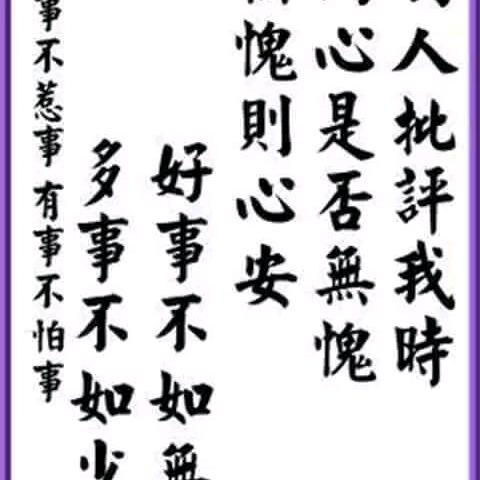 人批評我時
心是否無愧
愧則心安
好事不如無
多事不如少
事不惹事 有事不怕事